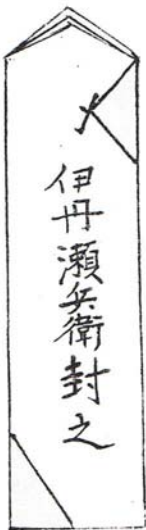 〆
伊丹瀬兵衛封之